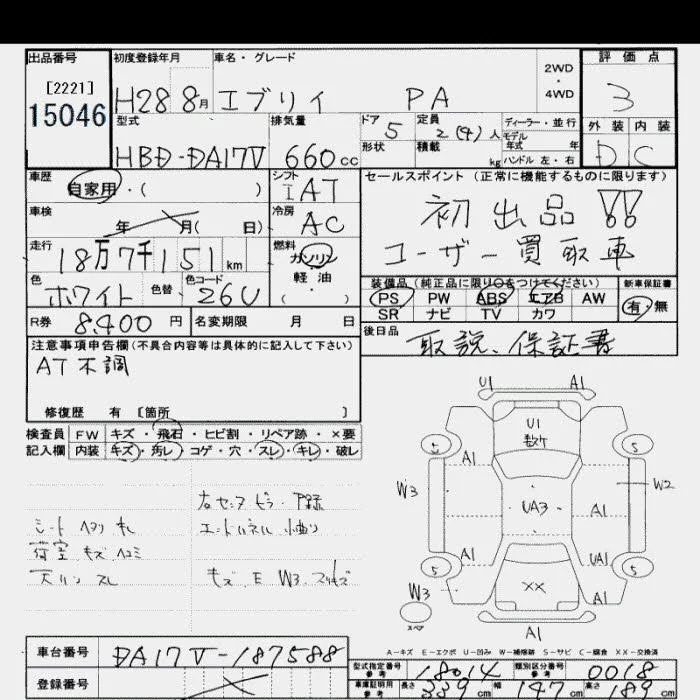 出品番号 初度登録年月 車名・グレード 2WD・4WD 評価点
[2221]
15046 H28 8月 エブリイ PA 3
型式 排気量 ドア 定員 ディーラー・並行 外装 内装
HBD-DA17V 660cc 5 2(4)人 モデル年式 年 D C
形状 積載 kg ハンドル 左・右
車歴 シフト セールスポイント(正常に機能するものに限ります)
自家用・( ) IAT 初出品!!
車検 冷房 ユーザー買取車
年 月( 日) AC
走行 燃料 装備品(純正品に限り○をつけてください) 新車保証書
18万7千151km ガソリン PS PW ABS エアB AW 有・無
色 色替 色コード 軽油 SR ナビ TV カワ
ホワイト 26U ( )
R券 8,400円 名変期限 月 日 後日品
取説、保証書
注意事項申告欄(不具合内容等は具体的に記入して下さい)
AT不調
修復歴 有 [箇所 ]
検査員 FW キズ・飛石・ヒビ割・リペア跡・×要
記入欄 内装 キズ・汚レ・コゲ・穴・スレ・キレ・破レ
シート ヘタリ キレ
荷室 キズ ヘコミ
キズ E W3
U1 A1
U1
5 A1 5
W3 W2
UA3 A1
A1 UA1
5 XX 5
W3
スペア A1
A-キズ E-エクボ U-凹み W-補修跡 S-サビ C-腐食 XX-交換済
車台番号 DA17V-187588 型式指定番号 参考 18014 類別区分番号 参考 0018
登録番号 車庫証明用 参考 長さ 339cm 幅 147cm 高さ 189cm